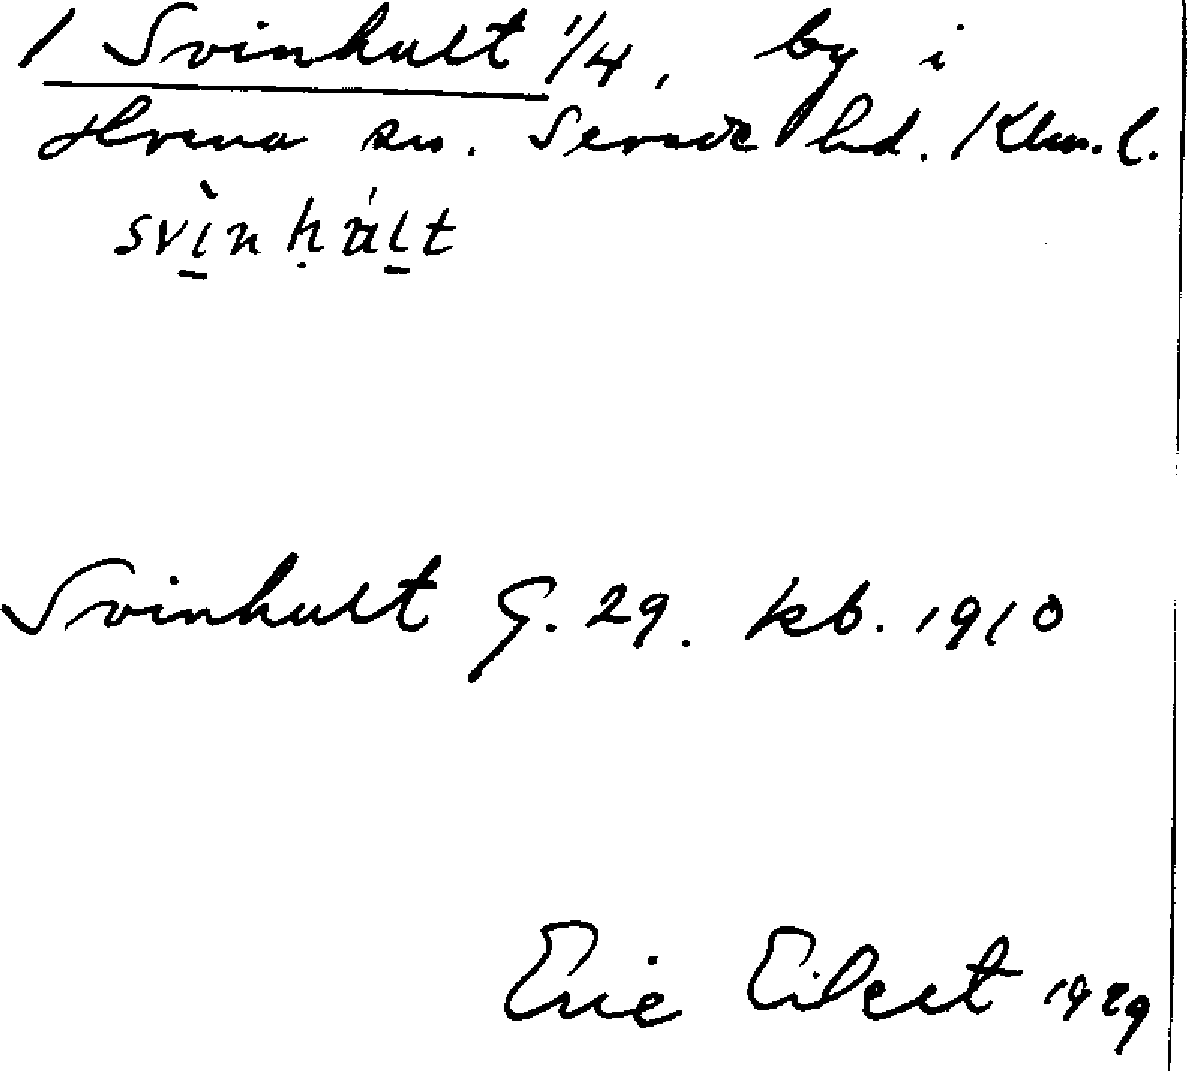 1 Svinhult 1/4, by i
Hvena sn. Sevede hd. Klm. l.
svì̱nḥúḻt
Svinhult G. 29. kb. 1910
Eric Eilert 1929